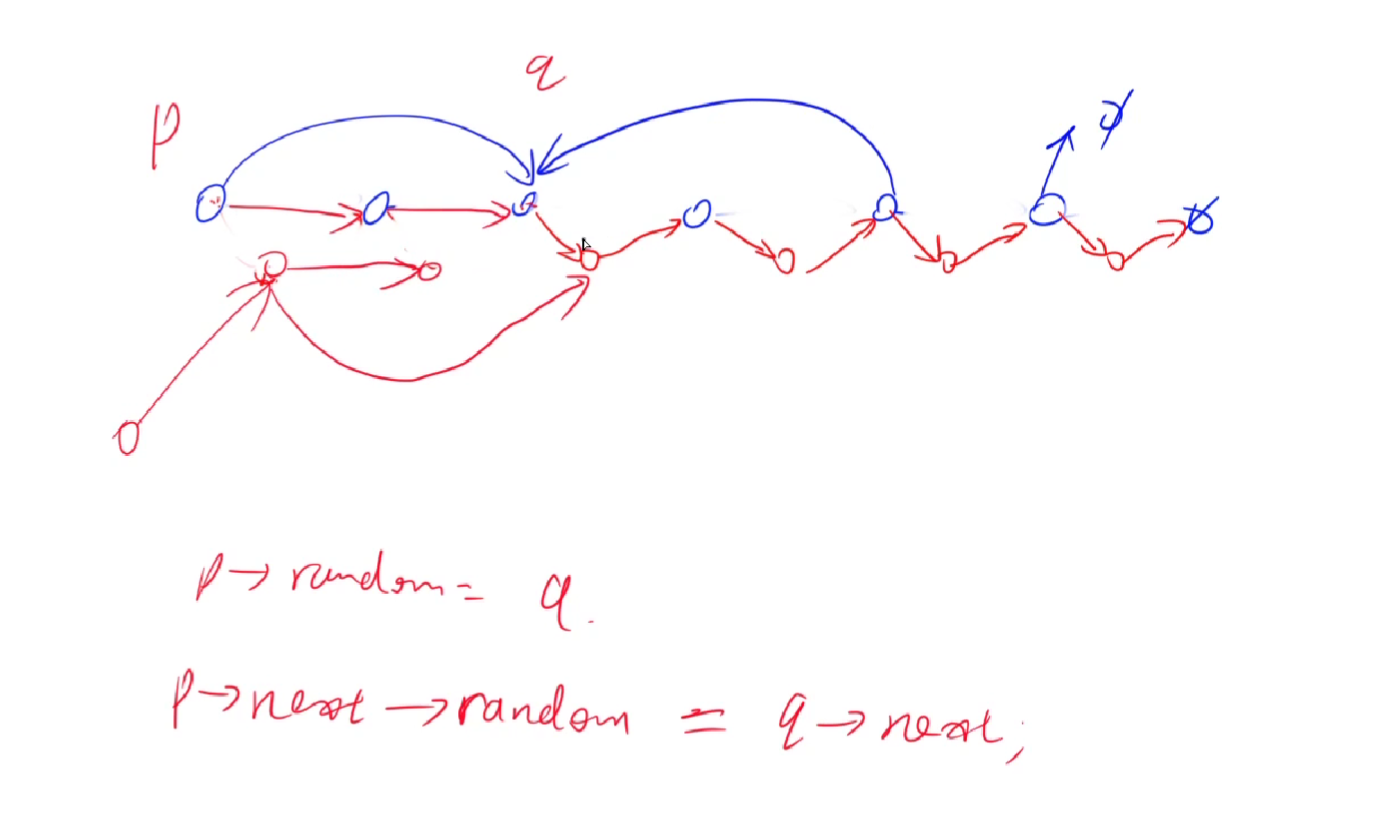 q
p
p→random = q.
p→next→random = q→next;